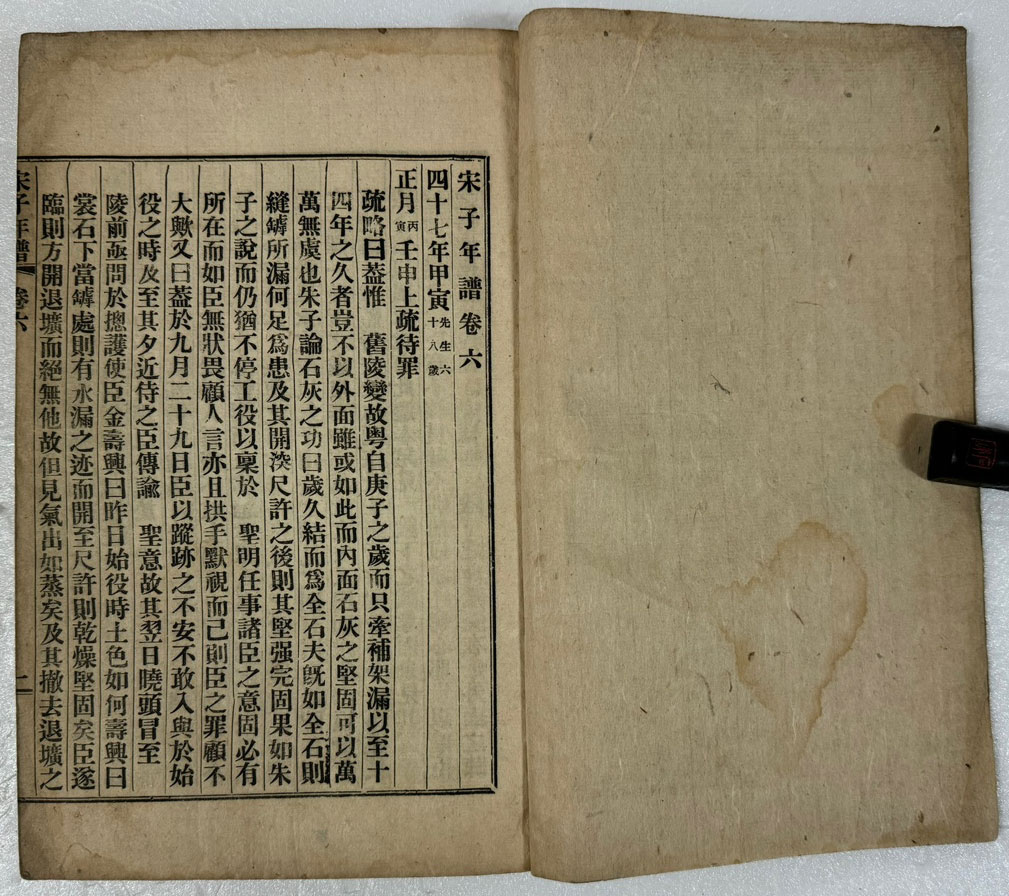 宋子年譜卷六
四十七年甲寅先生六十八歲
正月丙寅壬申上疏待罪
疏略曰葢惟 舊陵變故粤自庚子之歲而只牽補架漏以至十
四年之久者豈不以外面雖或如此而內面石灰之堅固可以萬
萬無虞也朱子論石灰之功曰歲久結而爲全石夫旣如全石則
縫罅所漏何足爲患及其開深尺許之後則其堅强完固果如朱
子之說而仍猶不停工役以稟於 聖明任事諸臣之意固必有
所在而如臣無狀畏顧人言亦且拱手默視而已則臣之罪顧不
大歟又曰葢於九月二十九日臣以蹤跡之不安不敢入與於始
役之時及至其夕近侍之臣傳諭 聖意故其翌日曉頭冒至
陵前亟問於摠護使臣金壽興曰昨日始役時土色如何壽興曰
裳石下當罅處則有水漏之迹而開至尺許則乾燥堅固矣臣遂
臨則方開退壙而絕無他故但見氣出如蒸矣及其撤去退壙之
宋子年譜 卷六 一